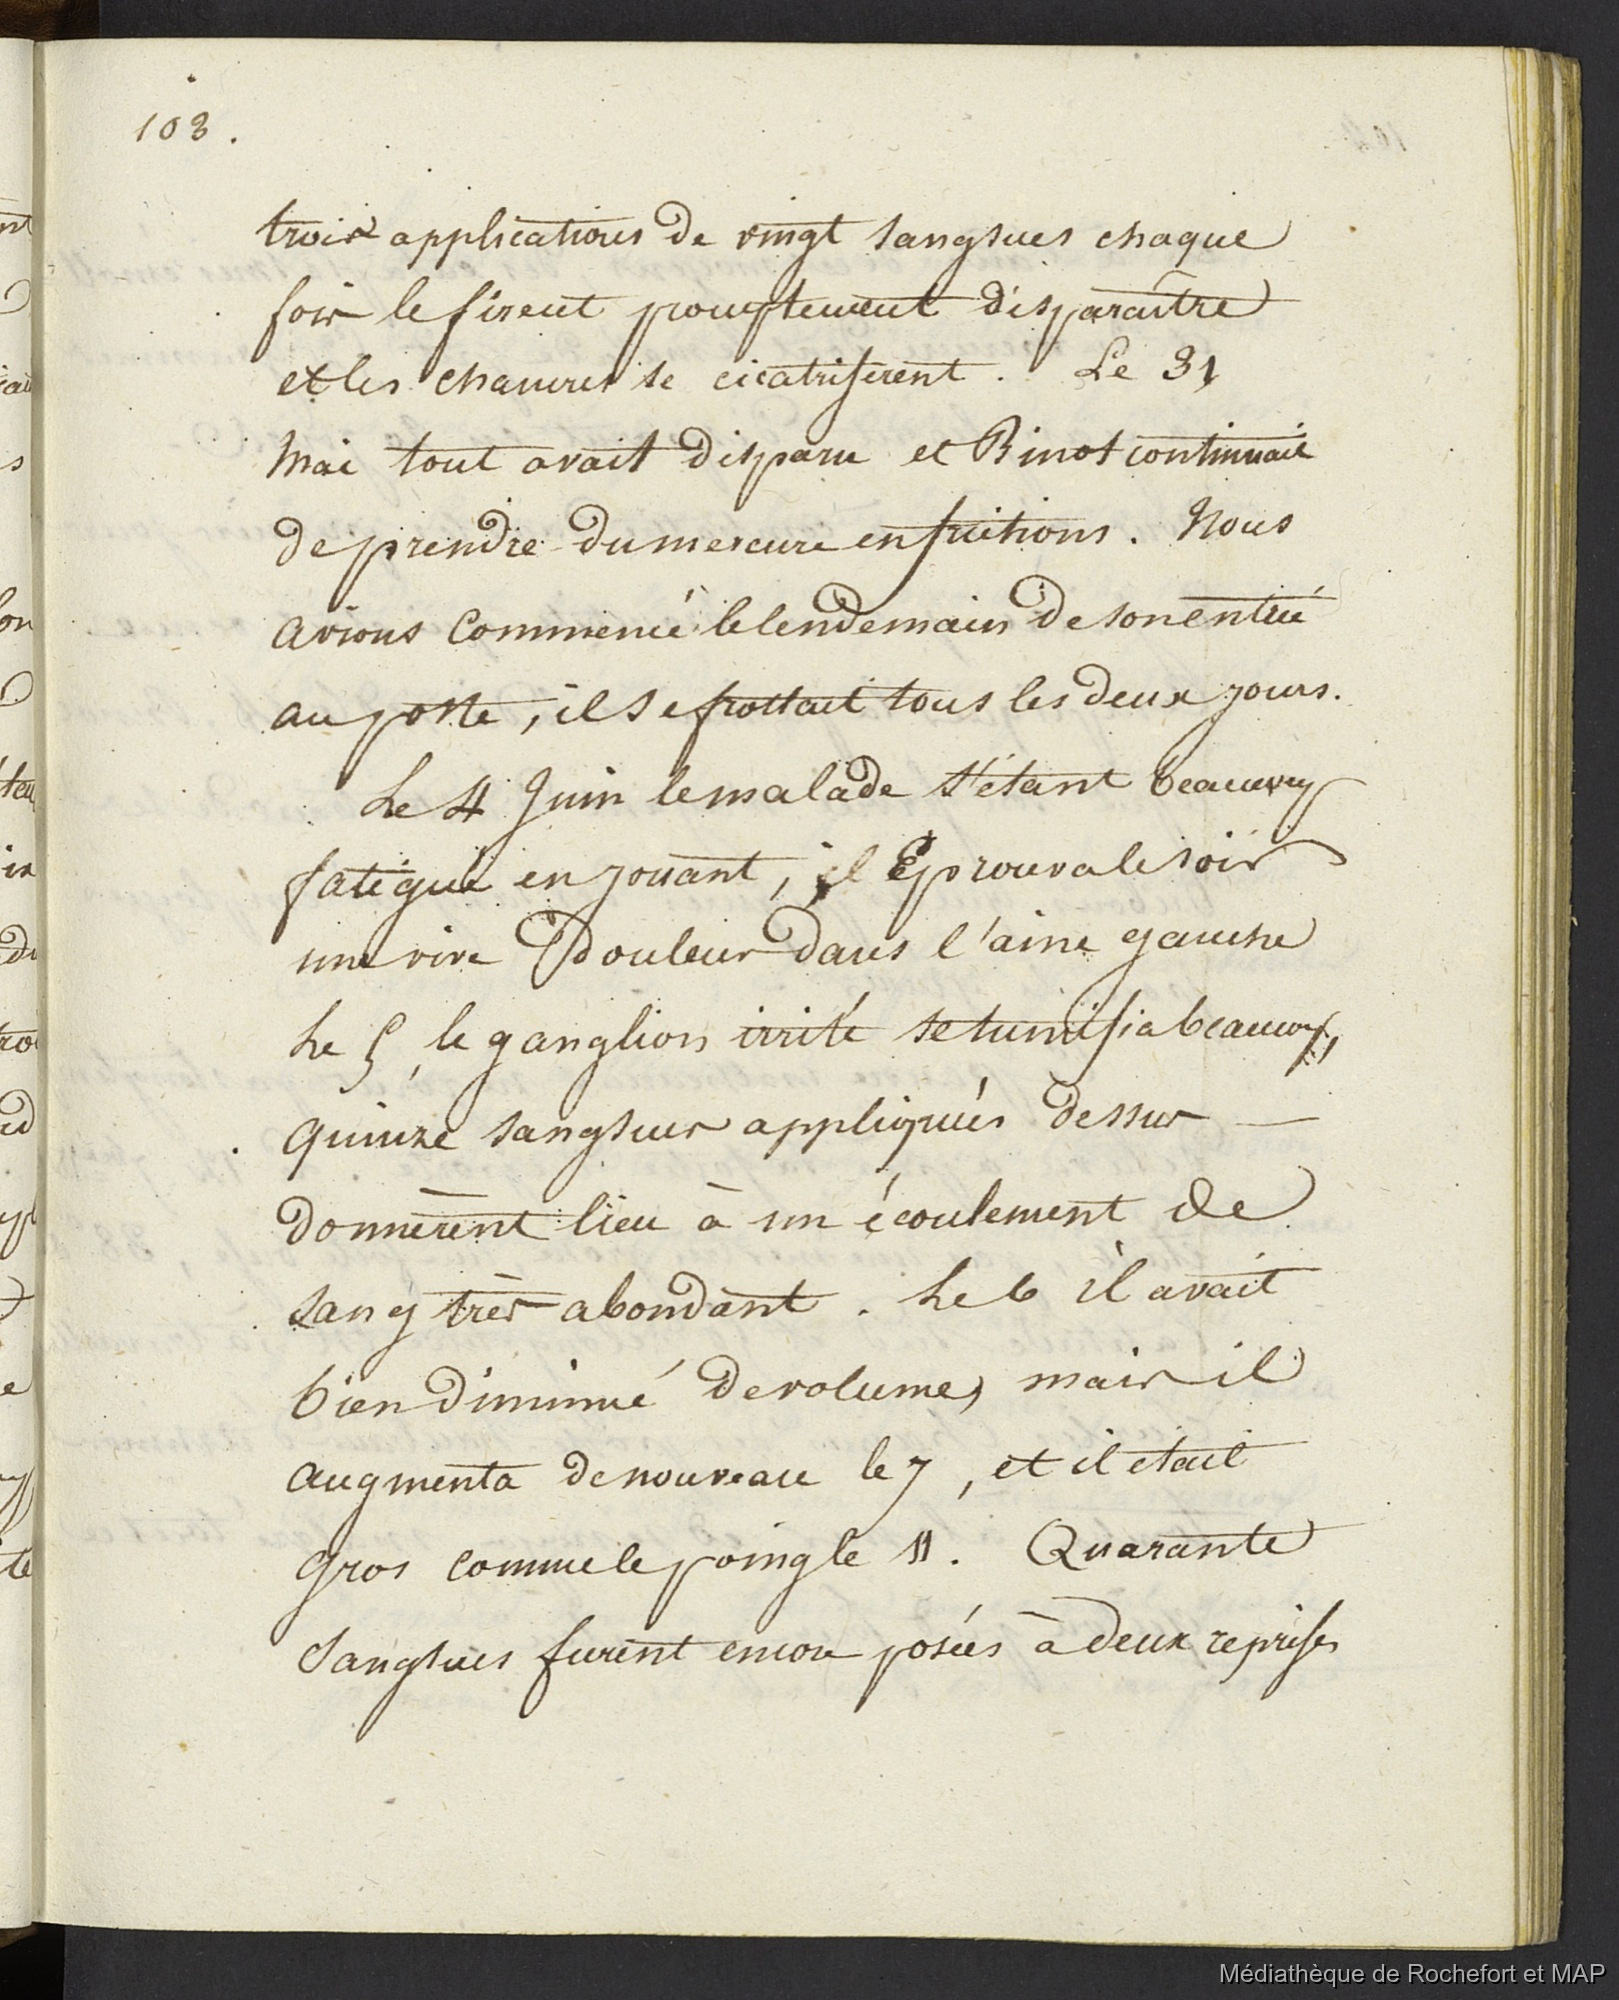 103.
trois applications de vingt sangsues chaque
fois le firent promptement disparaître
et les chancres se cicatriserent. Le 31
Mai tout avait disparu et Binot continuait
de prendre du mercure en frictions. Nous
avions commencé le lendemain de son entrée
au poste, il se frottait tous les deux jours.
Le 4 Juin le malade s'étant beaucoup
fatigué en jouant, il éprouva le soir
une vive Douleur dans l'aine gauche
Le 5, le ganglion irrité se tumefia beaucoup,
quinze sangsues appliquées dessus —
donnèrent lieu à un écoulement de
sang très abondant. Le 6 il avait
bien diminué de volume, mais il
augmenta de nouveau le 7, et il était
gros comme le poing le 11. Quarante
Sangsues furent encore posées à deux reprises
Médiathèque de Rochefort et MAP